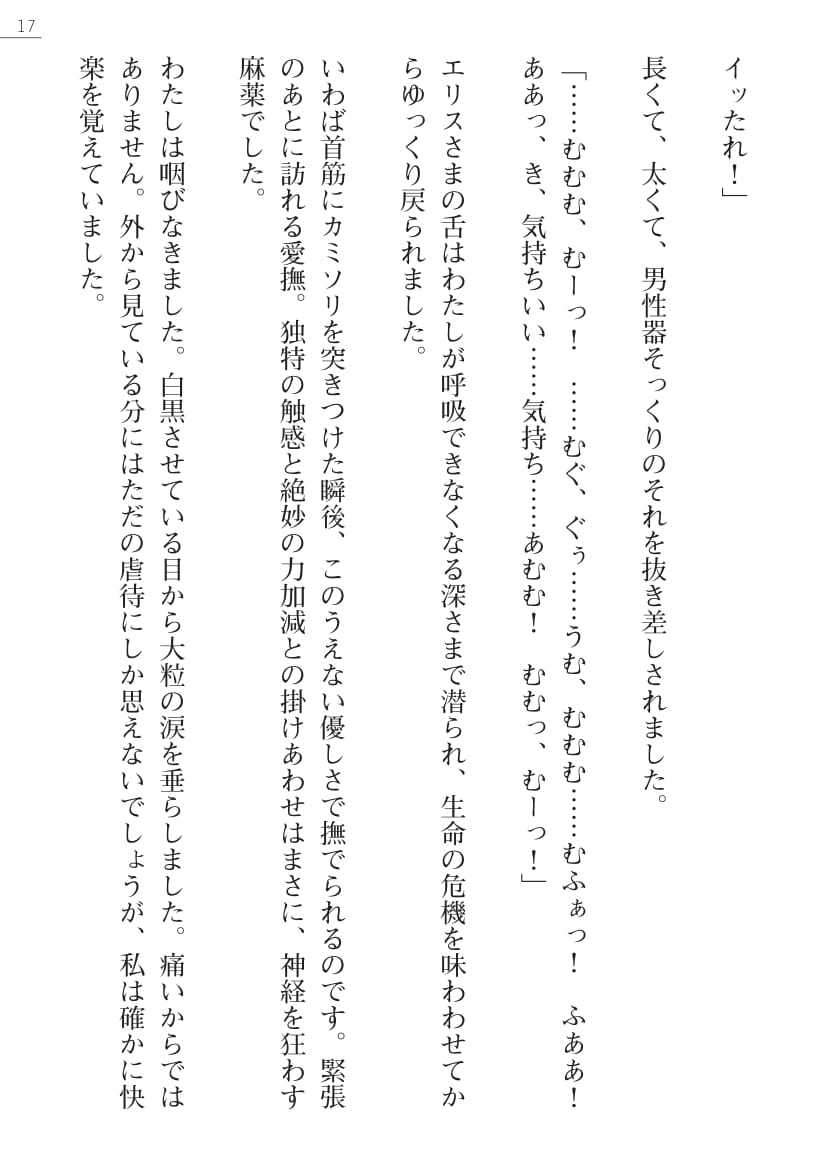 17
イッたれ！」
長くて、太くて、男性器そっくりのそれを抜き差しされました。
「……むむむ、むーっ！　……むぐ、ぐぅ……うむ、むむむ……むふぁっ！　ふああ！
ああっ、き、気持ちいい……気持ち……あむむ！　むむっ、むーっ！」
エリスさまの舌はわたしが呼吸できなくなる深さまで潜られ、生命の危機を味わわせてか
らゆっくり戻られました。
いわば首筋にカミソリを突きつけた瞬後、このうえない優しさで撫でられるのです。緊張
のあとに訪れる愛撫。独特の触感と絶妙の力加減との掛けあわせはまさに、神経を狂わす
麻薬でした。
わたしは咽びなきました。白黒させている目から大粒の涙を垂らしました。痛いからでは
ありません。外から見ている分にはただの虐待にしか思えないでしょうが、私は確かに快
楽を覚えていました。